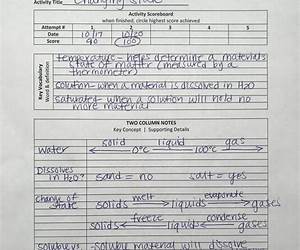 Activity Title Changing State
Activity Scoreboard
when finished, circle highest score achieved
Attempt # 1 2 3 4 5
Date 10/17 10/20
Score 90 100
Key Vocabulary
Word & definition
temperature - helps determine a materials
state of matter (measured by a
thermometer)
solution - when a material is dissolved in H2O
saturated - when a solution will hold no
more material
TWO COLUMN NOTES
Key Concept | Supporting Details
solids liquid gas
Water 0°C 100°C
Dissolves
in H2O? sand = no salt = yes
change of
state
melt evaporate
solids liquids gases
freeze condense
solids liquids gases
soluble material will dissolve